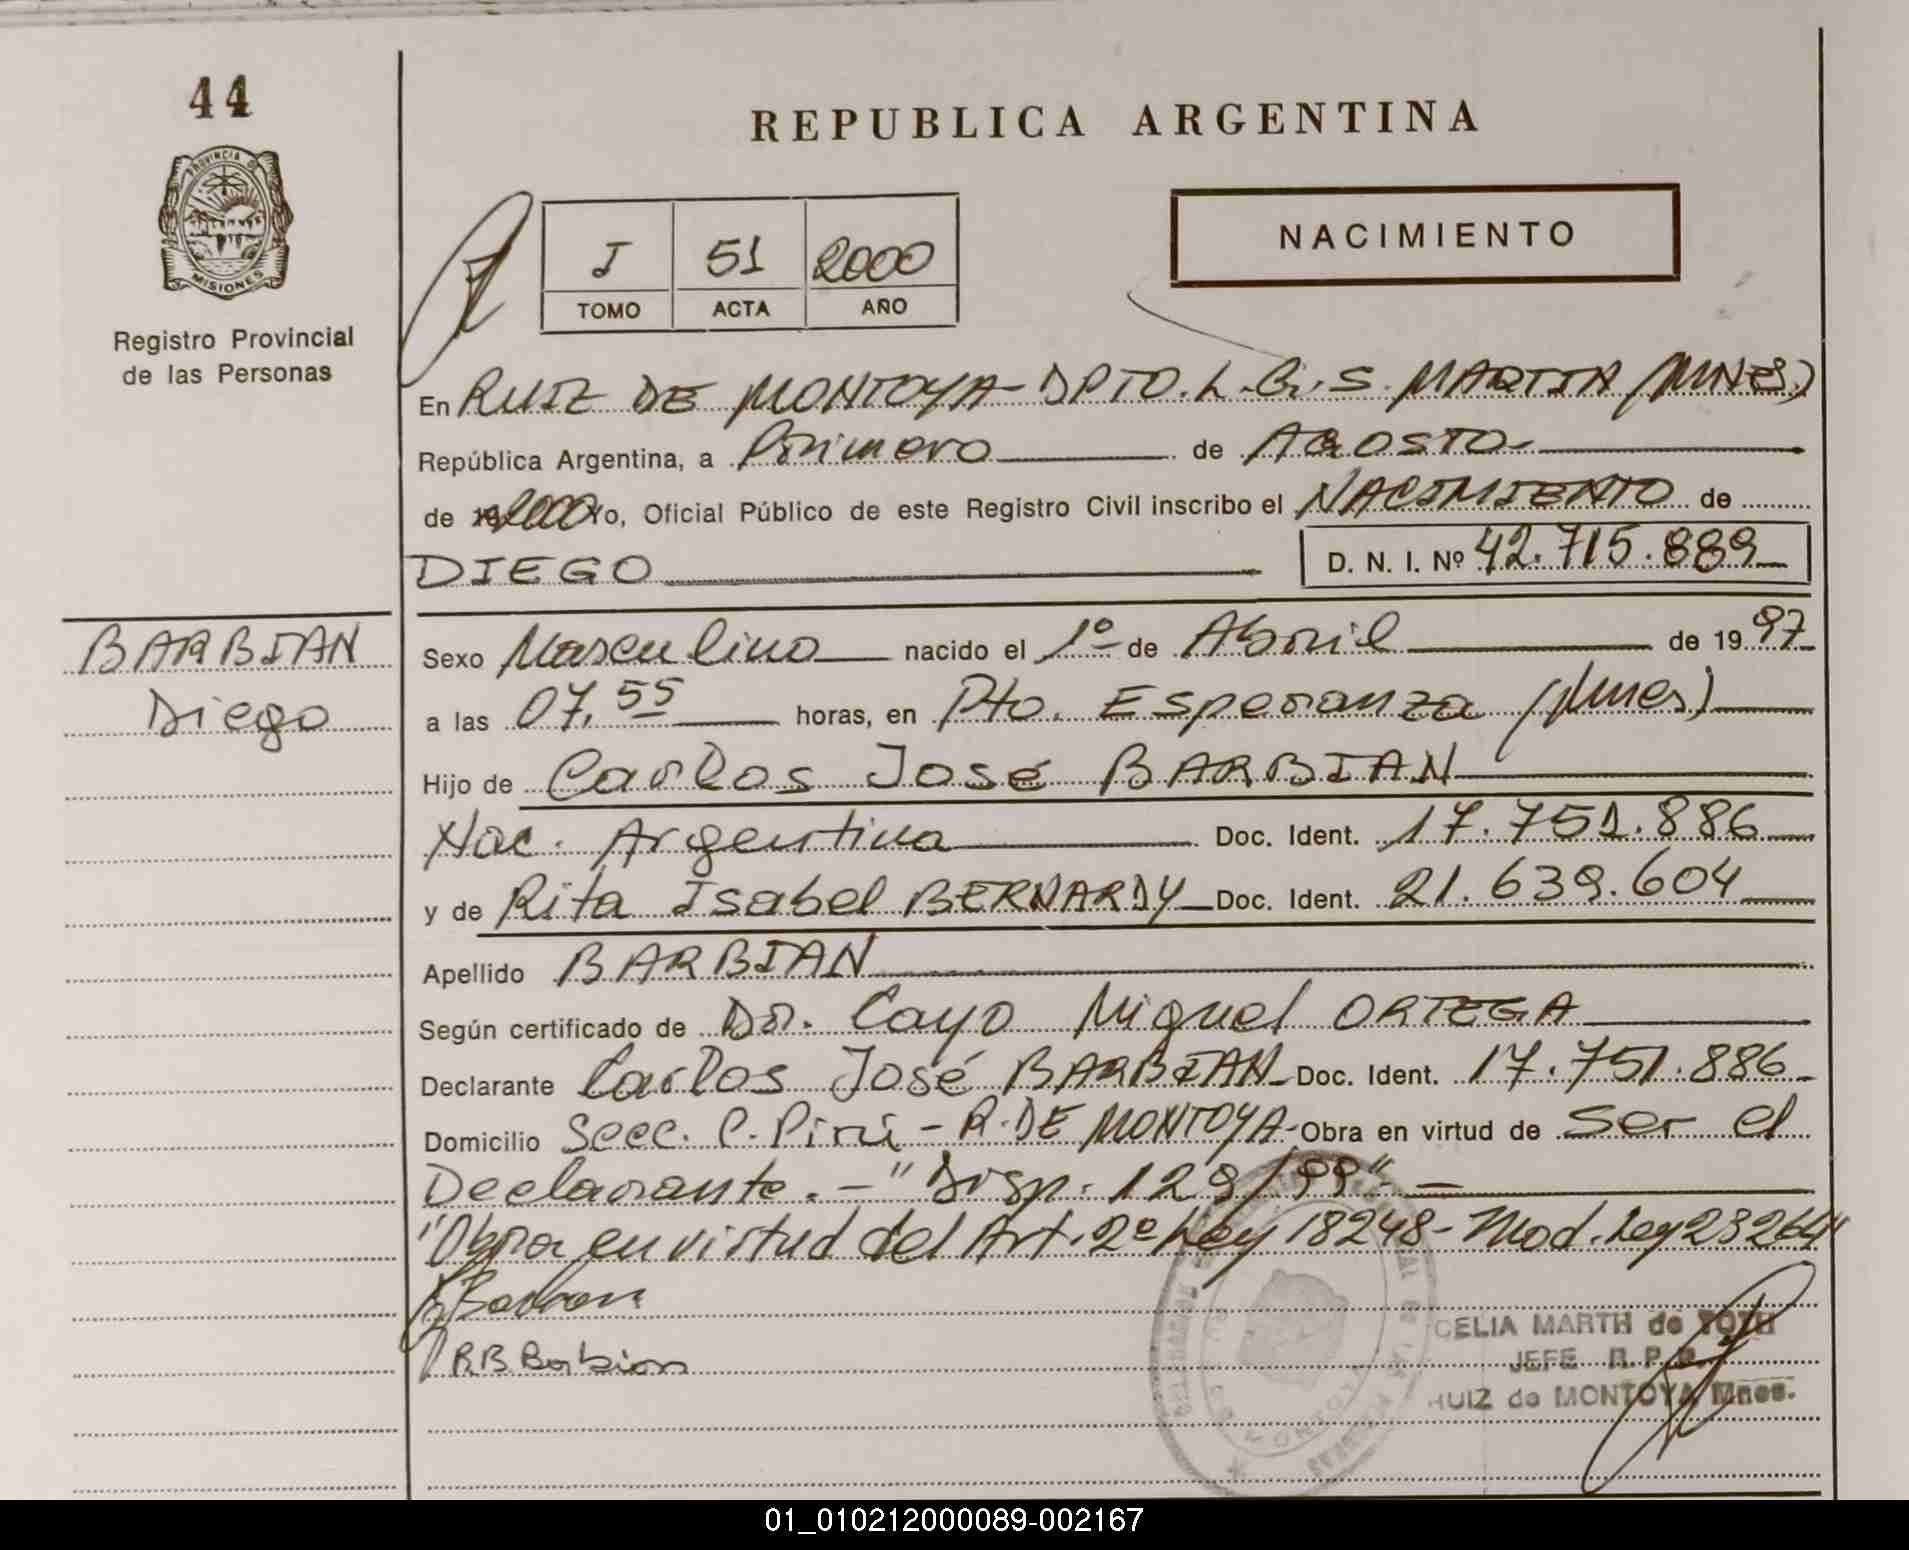 44
REPUBLICA ARGENTINA
PROVINCIA DE
MISIONES
Registro Provincial
de las Personas
I 51 2000
TOMO ACTA AÑO
NACIMIENTO
En RUIZ DE MONTOYA - DPTO. L. G. S. MARTIN (MNES.)
República Argentina, a Primero de AGOSTO.-
de 2000 Yo, Oficial Público de este Registro Civil inscribo el NACIMIENTO de
DIEGO D. N. I. Nº 42.715.889
BARBIAN
Diego
Sexo Masculino nacido el 1º de Abril de 1997
a las 07,55 horas, en Pto. Esperanza (Mnes)
Hijo de Carlos José BARBIAN
Nac. Argentina Doc. Ident. 17.751.886
y de Rita Isabel BERNARDY Doc. Ident. 21.639.604
Apellido BARBIAN
Según certificado de Dr. Cayo Miguel ORTEGA
Declarante Carlos José BARBIAN Doc. Ident. 17.751.886
Domicilio Secc. C. Pirú - R. DE MONTOYA - Obra en virtud de ser el
Declarante. - "Disp. 129/99" -
"Obra en virtud del Art. 2º Ley 18248 - Mod. Ley 23264"
R.B. Barbian
CELIA MARTH de TOTH
JEFE R. P. P.
RUIZ de MONTOYA Mnes.
01_010212000089-002167